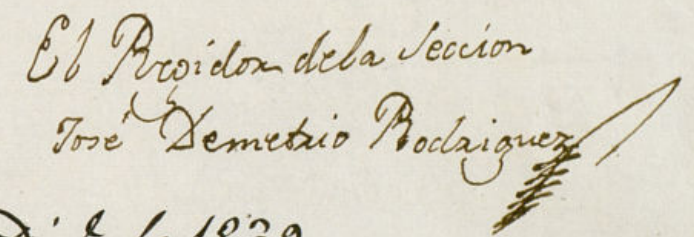 El Regidor dela Seccion
José Demetrio Rodriguez
1839